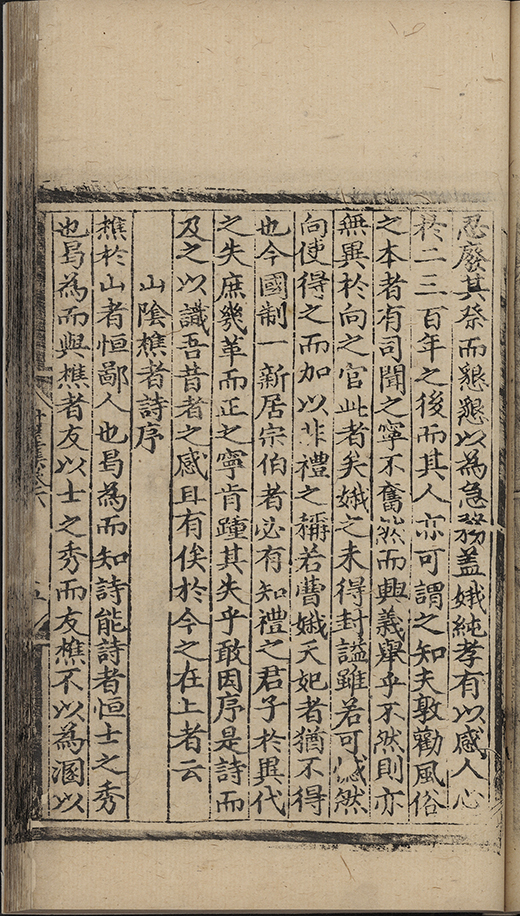 忍廢其祭而懇懇以為急務蓋娥純孝有以感人心
於二三百年之後而其人亦可謂之知夫敦勸風俗
之本者有司聞之寧不奮然而興義舉乎不然則亦
無異於向之官此者矣娥之未得封諡雖若可憾然
向使得之而加以非禮之稱若曹娥天妃者猶不得
也今國制一新居宗伯者必有知禮之君子於異代
之失庶幾革而正之寧肯踵其失乎敢因序是詩而
及之以識吾昔者之感且有俟於今之在上者云
山陰樵者詩序
樵於山者恒鄙人也曷為而知詩能詩者恒士之秀
也曷為而與樵者友以士之秀而友樵不以為溷以